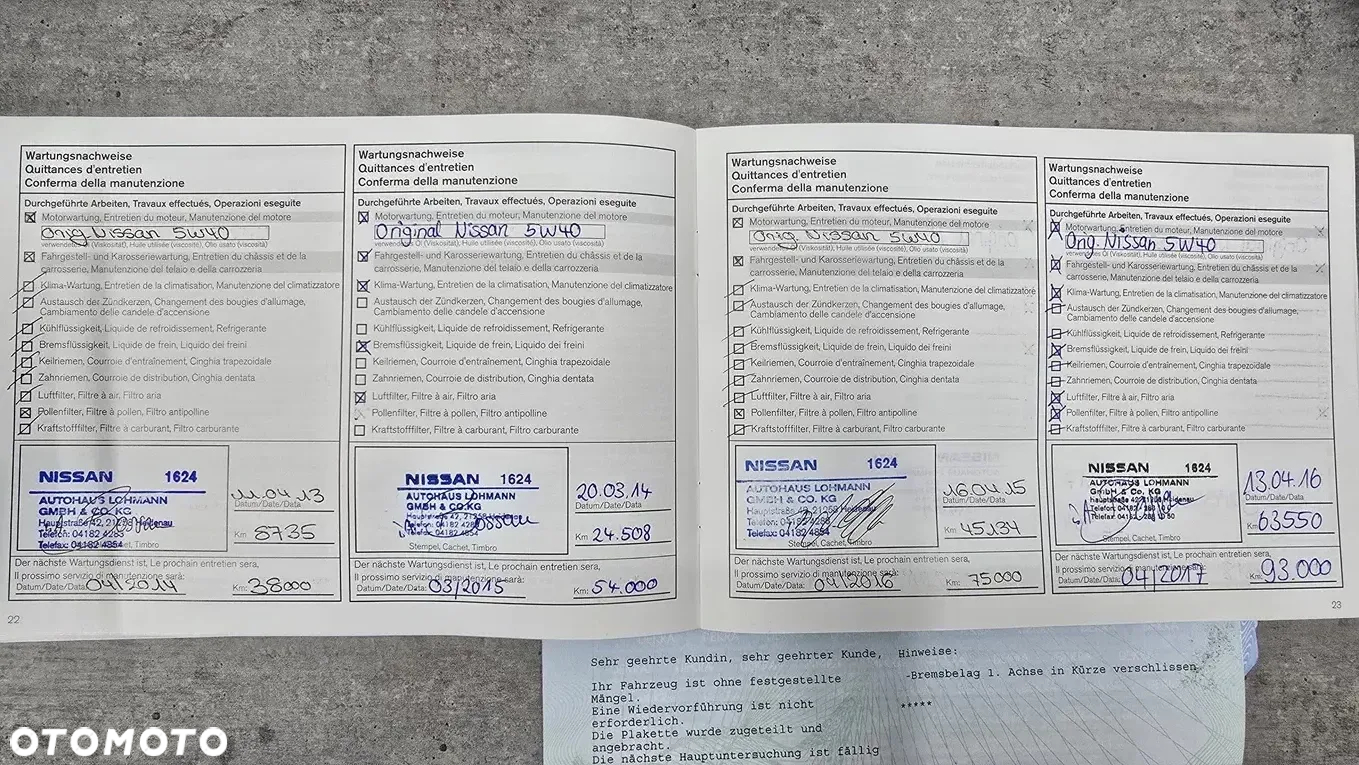 Wartungsnachweise
Quittances d'entretien
Conferma della manutenzione
Durchgeführte Arbeiten, Travaux effectués, Operazioni eseguite
Motorwartung, Entretien du moteur, Manutenzione del motore
Orig. Nissan 5W40
verwendetes Öl (Viskosität), Huile utilisée (viscosité), Olio usato (viscosità)
Fahrgestell- und Karosseriewartung, Entretien du châssis et de la
carrosserie, Manutenzione del telaio e della carrozzeria
Klima-Wartung, Entretien de la climatisation, Manutenzione del climatizzatore
Austausch der Zündkerzen, Changement des bougies d'allumage,
Cambiamento delle candele d'accensione
Kühlflüssigkeit, Liquide de refroidissement, Refrigerante
Bremsflüssigkeit, Liquide de frein, Liquido dei freini
Keilriemen, Courroie d'entraînement, Cinghia trapezoidale
Zahnriemen, Courroie de distribution, Cinghia dentata
Luftfilter, Filtre à air, Filtro aria
Pollenfilter, Filtre à pollen, Filtro antipolline
Kraftstofffilter, Filtre à carburant, Filtro carburante
NISSAN 1624
AUTOHAUS LOHMANN
GMBH & CO. KG
Hauptstraße 42, 21258 Heidenau
Telefon: 04182 4283
Telefax: 04182 4854
11.04.13
Datum/Date/Data
Km 8735
Der nächste Wartungsdienst ist, Le prochain entretien sera,
Il prossimo servizio di manutenzione sarà:
Datum/Date/Data: 04/2014 Km: 38000
22
Wartungsnachweise
Quittances d'entretien
Conferma della manutenzione
Durchgeführte Arbeiten, Travaux effectués, Operazioni eseguite
Motorwartung, Entretien du moteur, Manutenzione del motore
Original Nissan 5W40
verwendetes Öl (Viskosität), Huile utilisée (viscosité), Olio usato (viscosità)
Fahrgestell- und Karosseriewartung, Entretien du châssis et de la
carrosserie, Manutenzione del telaio e della carrozzeria
Klima-Wartung, Entretien de la climatisation, Manutenzione del climatizzatore
Austausch der Zündkerzen, Changement des bougies d'allumage,
Cambiamento delle candele d'accensione
Kühlflüssigkeit, Liquide de refroidissement, Refrigerante
Bremsflüssigkeit, Liquide de frein, Liquido dei freini
Keilriemen, Courroie d'entraînement, Cinghia trapezoidale
Zahnriemen, Courroie de distribution, Cinghia dentata
Luftfilter, Filtre à air, Filtro aria
Pollenfilter, Filtre à pollen, Filtro antipolline
Kraftstofffilter, Filtre à carburant, Filtro carburante
NISSAN 1624
AUTOHAUS LOHMANN
GMBH & CO. KG
Hauptstraße 42, 21258
Telefon: 04182 4283
Telefax: 04182 4854
Stempel, Cachet, Timbro
20.03.14
Datum/Date/Data
Km 24.508
Der nächste Wartungsdienst ist, Le prochain entretien sera,
Il prossimo servizio di manutenzione sarà:
Datum/Date/Data: 03/2015 Km: 54.000
Wartungsnachweise
Quittances d'entretien
Conferma della manutenzione
Durchgeführte Arbeiten, Travaux effectués, Operazioni eseguite
Motorwartung, Entretien du moteur, Manutenzione del motore
Orig Nissan 5W40
verwendetes Öl (Viskosität), Huile utilisée (viscosité), Olio usato (viscosità)
Fahrgestell- und Karosseriewartung, Entretien du châssis et de la
carrosserie, Manutenzione del telaio e della carrozzeria
Klima-Wartung, Entretien de la climatisation, Manutenzione del climatizzatore
Austausch der Zündkerzen, Changement des bougies d'allumage,
Cambiamento delle candele d'accensione
Kühlflüssigkeit, Liquide de refroidissement, Refrigerante
Bremsflüssigkeit, Liquide de frein, Liquido dei freini
Keilriemen, Courroie d'entraînement, Cinghia trapezoidale
Zahnriemen, Courroie de distribution, Cinghia dentata
Luftfilter, Filtre à air, Filtro aria
Pollenfilter, Filtre à pollen, Filtro antipolline
Kraftstofffilter, Filtre à carburant, Filtro carburante
NISSAN 1624
AUTOHAUS LOHMANN
GMBH & CO. KG
Hauptstraße 42, 21258 Heidenau
Telefon: 04182 4283
Telefax: 04182 4854
Stempel, Cachet, Timbro
16.04.15
Datum/Date/Data
Km 45134
Der nächste Wartungsdienst ist, Le prochain entretien sera,
Il prossimo servizio di manutenzione sarà:
Datum/Date/Data: 04/2016 Km: 75000
Wartungsnachweise
Quittances d'entretien
Conferma della manutenzione
Durchgeführte Arbeiten, Travaux effectués, Operazioni eseguite
Motorwartung, Entretien du moteur, Manutenzione del motore
Orig. Nissan 5W40
verwendetes Öl (Viskosität), Huile utilisée (viscosité), Olio usato (viscosità)
Fahrgestell- und Karosseriewartung, Entretien du châssis et de la
carrosserie, Manutenzione del telaio e della carrozzeria
Klima-Wartung, Entretien de la climatisation, Manutenzione del climatizzatore
Austausch der Zündkerzen, Changement des bougies d'allumage,
Cambiamento delle candele d'accensione
Kühlflüssigkeit, Liquide de refroidissement, Refrigerante
Bremsflüssigkeit, Liquide de frein, Liquido dei freini
Keilriemen, Courroie d'entraînement, Cinghia trapezoidale
Zahnriemen, Courroie de distribution, Cinghia dentata
Luftfilter, Filtre à air, Filtro aria
Pollenfilter, Filtre à pollen, Filtro antipolline
Kraftstofffilter, Filtre à carburant, Filtro carburante
NISSAN 1624
AUTOHAUS LOHMANN
GmbH & Co. KG
Hauptstraße 42, 21258 Heidenau
Telefon: 04182
Telefax: 04182
Stempel, Cachet, Timbro
13.04.16
Datum/Date/Data
Km 63550
Der nächste Wartungsdienst ist, Le prochain entretien sera,
Il prossimo servizio di manutenzione sarà:
Datum/Date/Data: 04/2017 Km: 93.000
23
Sehr geehrte Kundin, sehr geehrter Kunde,
Ihr Fahrzeug ist ohne festgestellte
Mängel.
Eine Wiedervorführung ist nicht
erforderlich.
Die Plakette wurde zugeteilt und
angebracht.
Die nächste Hauptuntersuchung ist fällig
Hinweise:
-Bremsbelag 1. Achse in Kürze verschlissen
*****
OTOMOTO